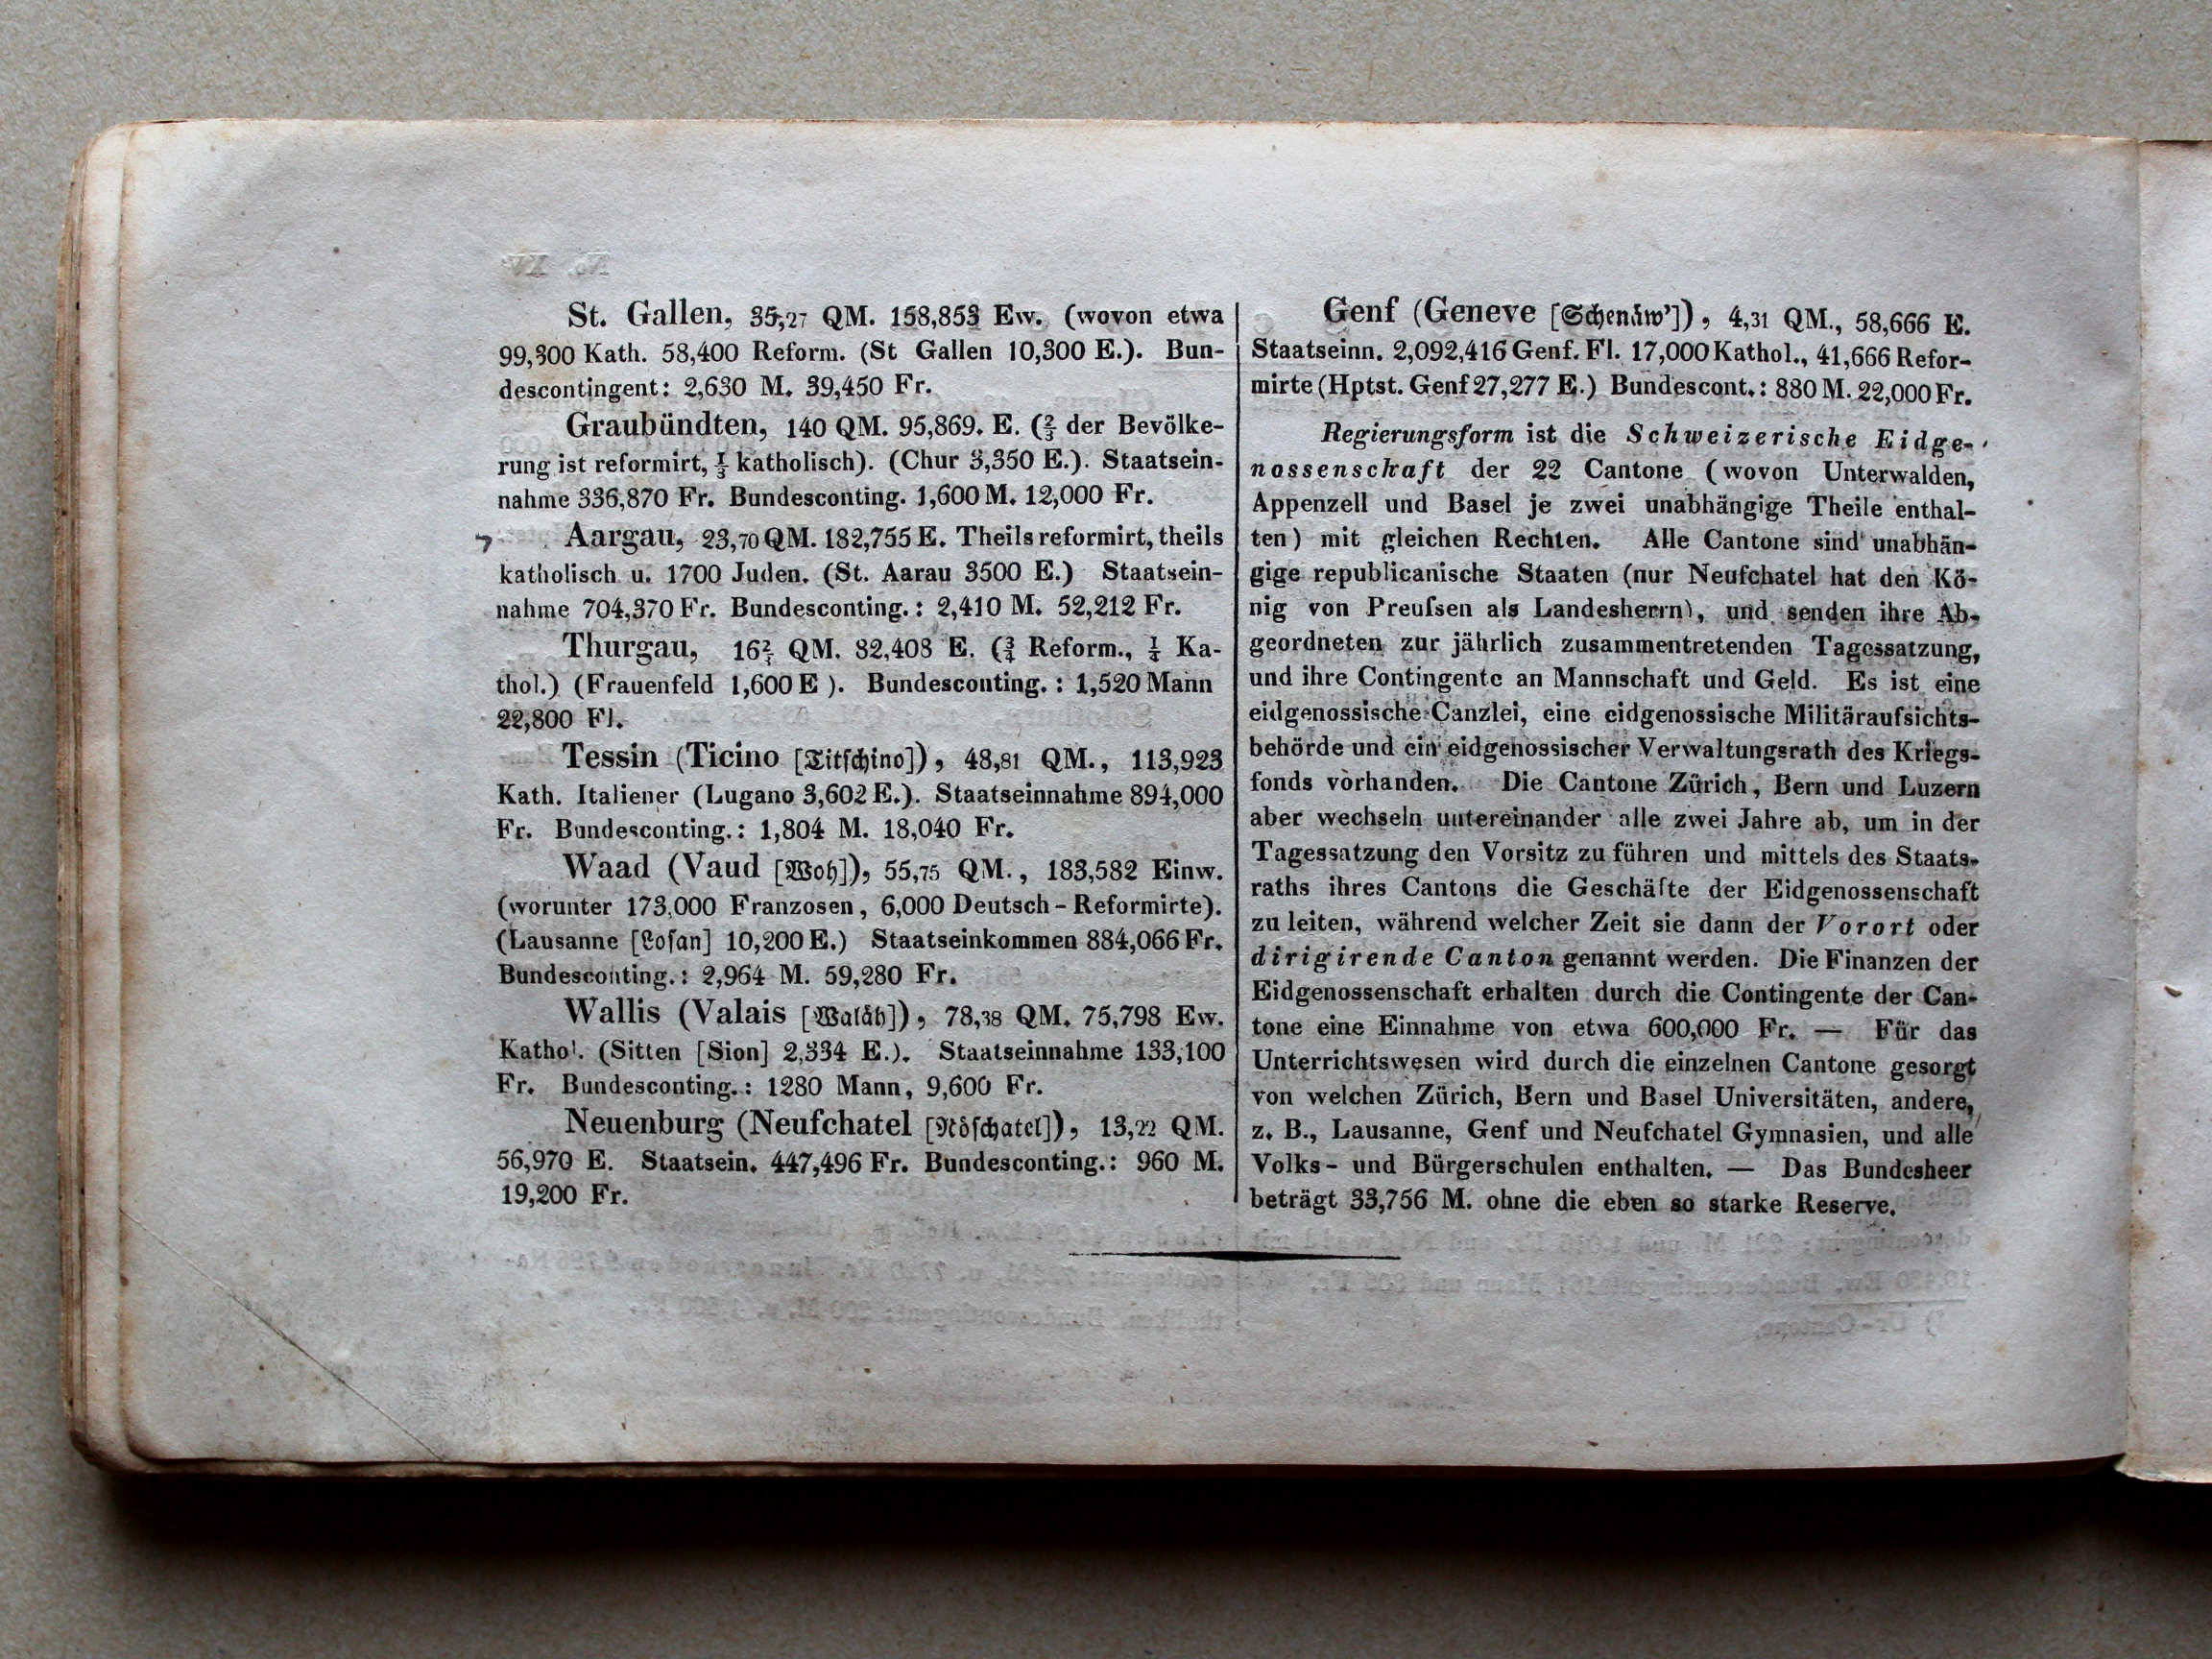 St. Gallen, 35,27 QM. 158,853 Ew. (wovon etwa
99,300 Kath. 58,400 Reform. (St Gallen 10,300 E.). Bun-
descontingent: 2,630 M. 39,450 Fr.
Graubündten, 140 QM. 95,869. E. (⅔ der Bevölke-
rung ist reformirt, ⅓ katholisch). (Chur 3,350 E.). Staatsein-
nahme 336,870 Fr. Bundesconting. 1,600 M. 12,000 Fr.
Aargau, 23,70 QM. 182,755 E. Theils reformirt, theils
katholisch u. 1700 Juden. (St. Aarau 3500 E.) Staatsein-
nahme 704,370 Fr. Bundesconting.: 2,410 M. 52,212 Fr.
Thurgau, QM. 82,408 E. (¾ Reform., Ka-
thol.) (Frauenfeld 1,600 E ). Bundesconting.: 1,520 Mann
22,800 Fl.
Tessin (Ticino [Titſchino]), 48,81 QM., 113,923
Kath. Italiener (Lugano 3,602 E.). Staatseinnahme 894,000
Fr. Bundesconting.: 1,804 M. 18,040 Fr.
Waad (Vaud [Woh]), 55,75 QM., 183,582 Einw.
(worunter 173,000 Franzosen, 6,000 Deutsch-Reformirte).
(Lausanne [Loſan] 10,200 E.) Staatseinkommen 884,066 Fr.
Bundesconting.: 2,964 M. 59,280 Fr.
Wallis (Valais [Waläh]), 78,38 QM. 75,798 Ew.
Kathol. (Sitten [Sion] 2,334 E.). Staatseinnahme 133,100
Fr. Bundesconting.: 1280 Mann, 9,600 Fr.
Neuenburg (Neufchatel [Nöſchatel]), 13,22 QM.
56,970 E. Staatsein. 447,496 Fr. Bundesconting.: 960 M.
19,200 Fr.
Genf (Geneve [Schenäw']), 4,31 QM., 58,666 E.
Staatseinn. 2,092,416 Genf. Fl. 17,000 Kathol., 41,666 Refor-
mirte (Hptst. Genf 27,277 E.) Bundescont.: 880 M. 22,000 Fr.
Regierungsform ist die Schweizerische Eidge-
nossenschaft der 22 Cantone (wovon Unterwalden,
Appenzell und Basel je zwei unabhängige Theile enthal-
ten) mit gleichen Rechten. Alle Cantone sind unabhän-
gige republicanische Staaten (nur Neufchatel hat den Kö-
nig von Preuſsen als Landesherrn), und senden ihre Ab-
geordneten zur jährlich zusammentretenden Tagessatzung,
und ihre Contingente an Mannschaft und Geld. Es ist eine
eidgenossische Canzlei, eine eidgenossische Militäraufsichts-
behörde und ein eidgenossischer Verwaltungsrath des Kriegs-
fonds vorhanden. Die Cantone Zürich, Bern und Luzern
aber wechseln untereinander alle zwei Jahre ab, um in der
Tagessatzung den Vorsitz zu führen und mittels des Staats-
raths ihres Cantons die Geschäfte der Eidgenossenschaft
zu leiten, während welcher Zeit sie dann der Vorort oder
dirigirende Canton genannt werden. Die Finanzen der
Eidgenossenschaft erhalten durch die Contingente der Can-
tone eine Einnahme von etwa 600,000 Fr. — Für das
Unterrichtswesen wird durch die einzelnen Cantone gesorgt
von welchen Zürich, Bern und Basel Universitäten, andere,
z. B., Lausanne, Genf und Neufchatel Gymnasien, und alle
Volks- und Bürgerschulen enthalten. — Das Bundesheer
beträgt 33,756 M. ohne die eben so starke Reserve.